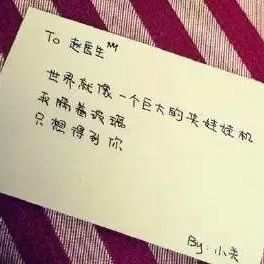 To 赵医生
世界就像一个巨大的夹娃娃机
我隔着玻璃
只想得到你
By:小美